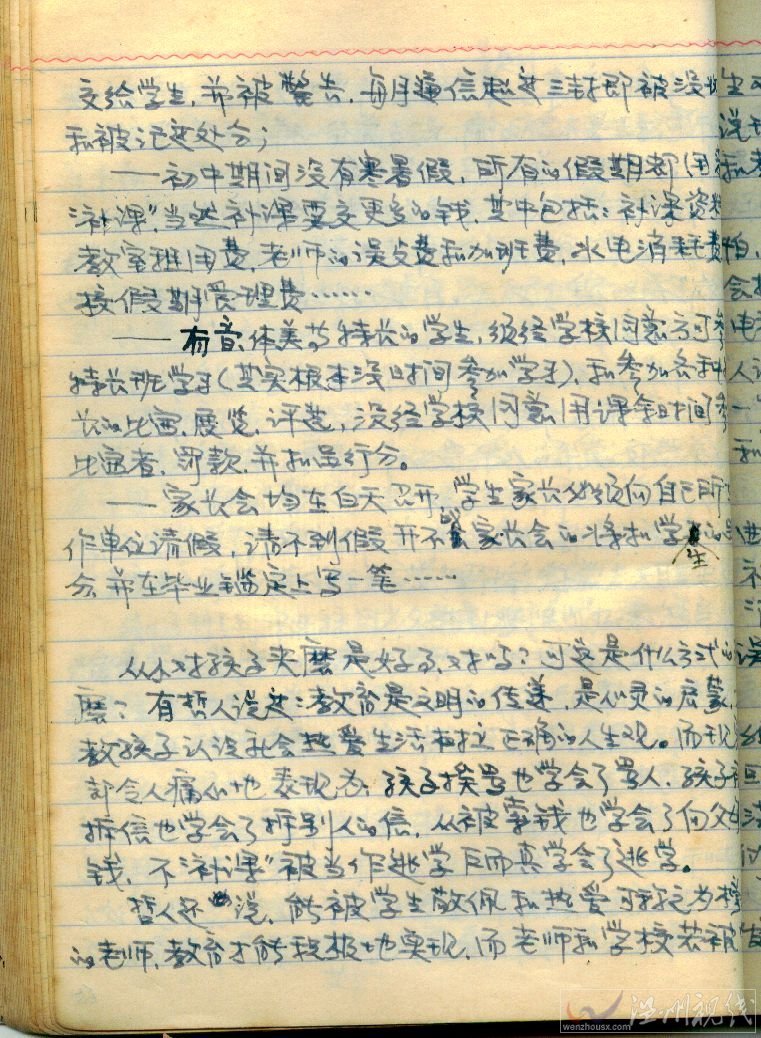 交给学生，并被警告，每月通信超过三封即被没收
和被记过处分；
——初中期间没有寒暑假，所有的假期都用
"补课"，当然补课要交更多的钱，其中包括：补课资料
教室班用费，老师的误餐费和加班费，水电消耗费
校假期管理费……
——有音、体、美等特长的学生，须经学校同意方可参
特长班学习（其实根本没时间参加学习），和参加各种
长的比赛、展览、评选，没经学校同意用课余时间参
比赛者，罚款，并扣品行分。
——家长会均在白天召开，学生家长必须向自己所
作单位请假，请不到假开不家长会的将扣学生的
分，并在毕业鉴定上写一笔……
从小对孩子夹磨是好事，对吗？可这是什么方式的
磨？有哲人说过：教育是文明的传递，是心灵的启蒙，
教孩子认识社会热爱生活树立正确的人生观。而现
却令人痛心地表现为：孩子挨骂也学会了骂人，孩子被
拆信也学会了拆别人的信，从被索钱也学会了向父母
钱，不"补课"被当作逃学反而真学会了逃学。
哲人还说，能被学生敬佩和热爱可称之为榜
的老师，教育才能积极地实现，而老师和学校若被
温州视线
wenzhousx.com